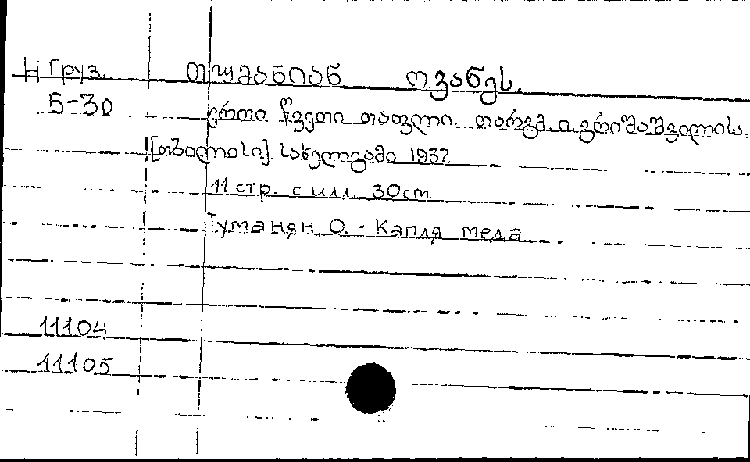 Н Груз. თუმანიან ოვანეს.
Б-30 ერთი წვეთი თაფლი. თარგმ. ი. გრიშაშვილისა.
[თბილისი]. სახელგამი 1937
11 стр. с илл. 30 cm
Туманян О. - Капля меда
11104
11105